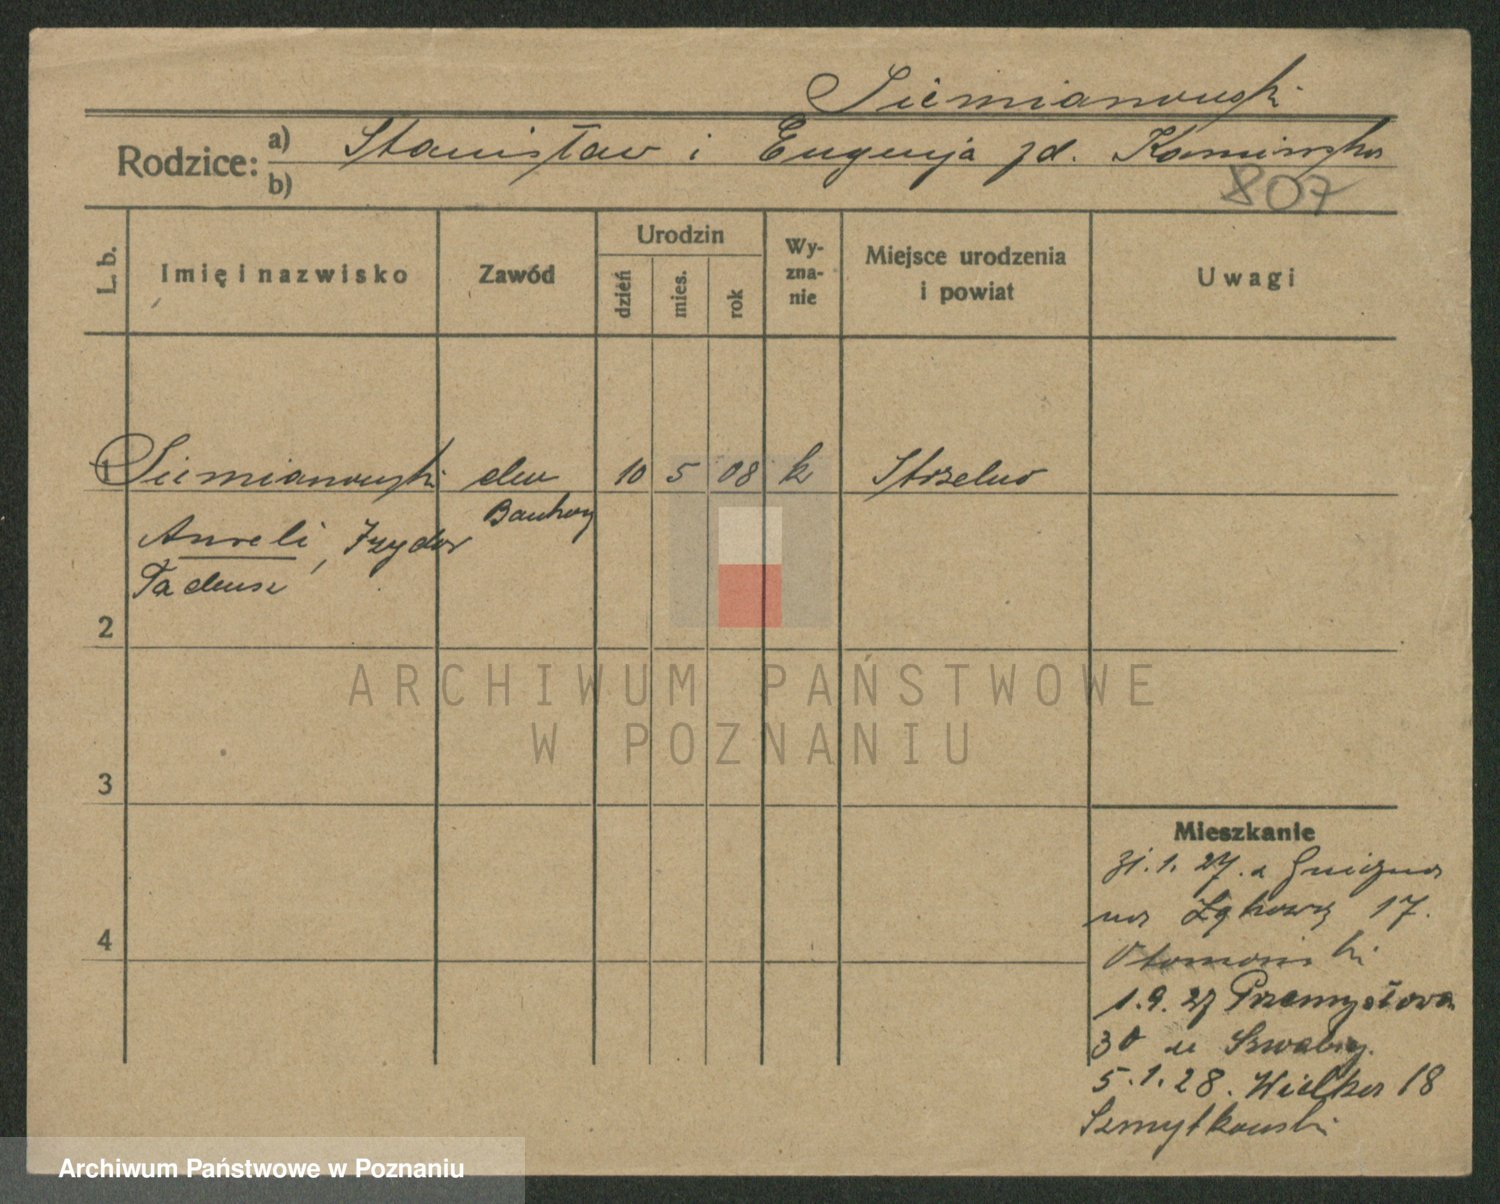 Siemianowski
Rodzice: a) Stanisław i Eugenja zd. Kamińska
b)
807
L. b.
Imię i nazwisko
Zawód
Urodzin
dzień
mies.
rok
Wy-
zna-
nie
Miejsce urodzenia
i powiat
Uwagi
1 Siemianowski elew 10 5 08 k Strzelno
Bankowy
Aureli, Izydor
Tadeusz
2
3
4
Mieszkanie
31.1.27. z Gniezna
na Łąkową 17.
1.9.27 Przemysłowa
30 u Szwaby.
5.1.28. Wielka 18
Szmytkowski
ARCHIWUM PAŃSTWOWE
W POZNANIU
Archiwum Państwowe w Poznaniu